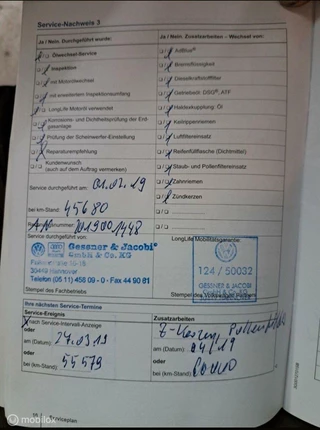 Service-Nachweis 3
Ja / Nein. Durchgeführt wurde:
Ölwechsel-Service
Inspektion
mit Motorölwechsel
mit erweitertem Inspektionsumfang
LongLife Motoröl verwendet
Korrosions- und Dichtheitsprüfung der Erdgasanlage
Prüfung der Scheinwerfer-Einstellung
Reparaturempfehlung
Kundenwunsch
(auch auf dem Auftrag vermerken)
Service durchgeführt am: 01.02.19
bei km-Stand: 45680
Service durchgeführt von:
Gessner & Jacobi
GmbH & Co. KG
30449 Hannover
Stempel des Fachbetriebs
Ja / Nein. Zusatzarbeiten – Wechsel von:
AdBlue
Bremsflüssigkeit
Dieselkraftstofffilter
Getriebeöl: DSG, ATF
Haldexkupplung: Öl
Keilrippenriemen
Luftfiltereinsatz
Reifenfüllflasche (Dichtmittel)
Staub- und Pollenfiltereinsatz
Zahnriemen
Zündkerzen
LongLife Mobilitätsgarantie:
124 / 50032
GESSNER & JACOBI
Stempel des Volkswagen Partners
Ihre nächsten Service-Termine
Service-Ereignis
nach Service-Intervall-Anzeige
oder
am (Datum): 24.03.19
oder
bei (km-Stand): 55579
Zusatzarbeiten
am (Datum): 04/19
oder
bei (km-Stand):
Serviceplan
marktplaats